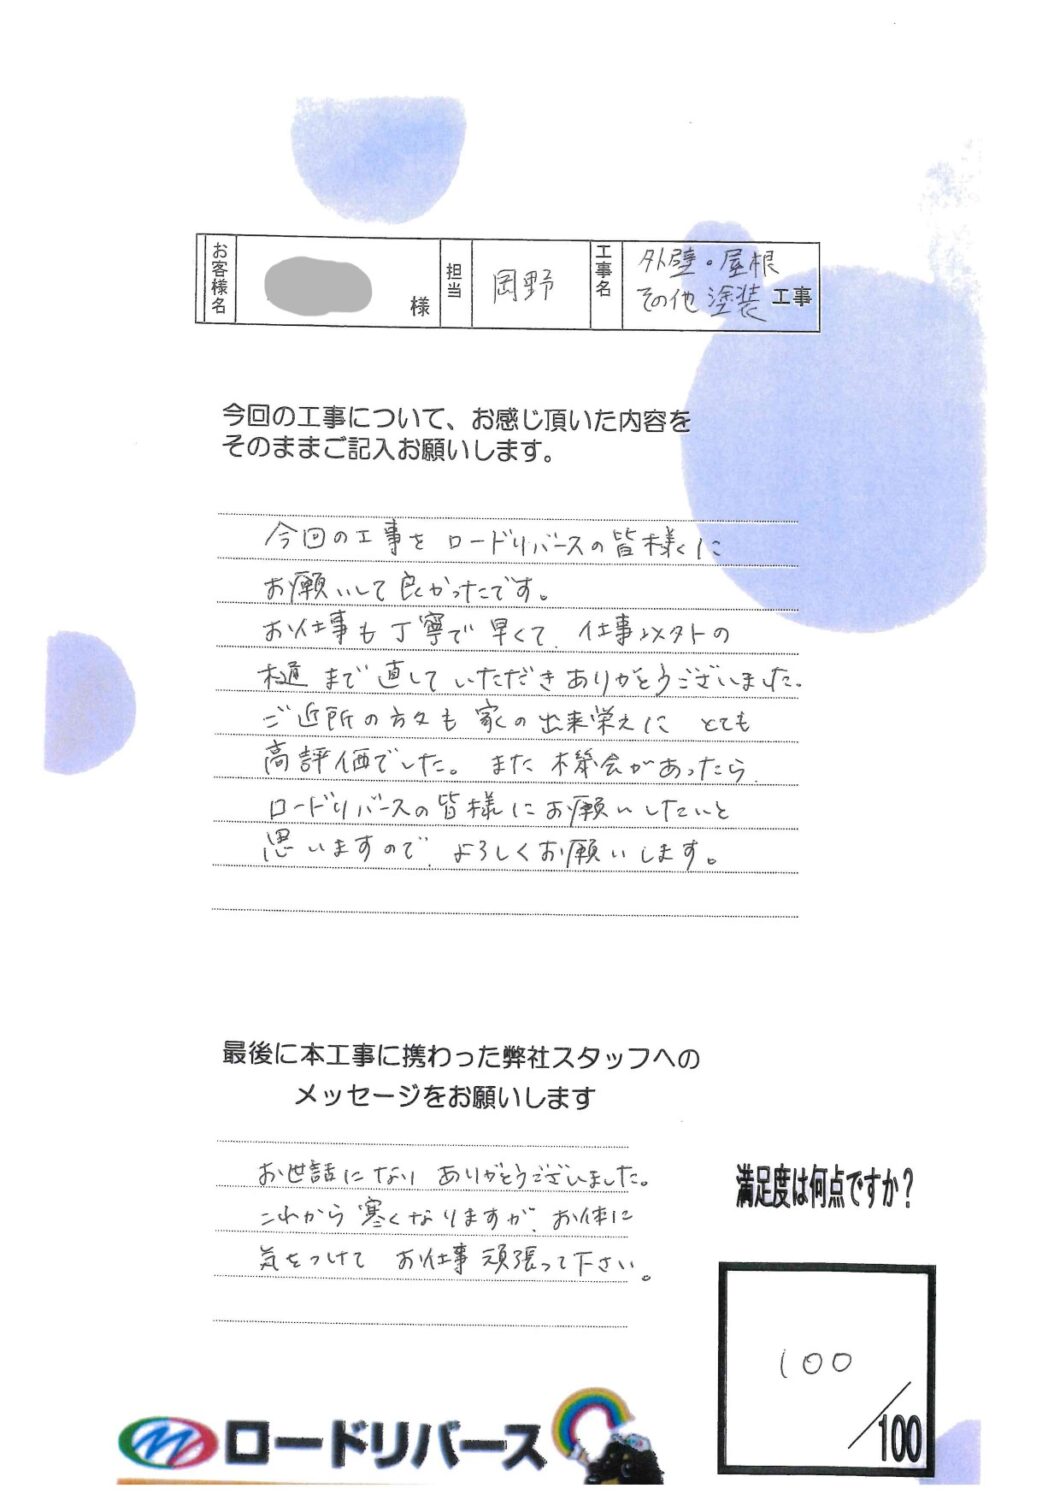 お客様名
様
担当
岡野
工事名
外壁・屋根
その他 塗装 工事
今回の工事について、お感じ頂いた内容を
そのままご記入お願いします。
今回の工事を ロードリバースの皆様に
お願いして良かったです。
お仕事も丁寧で早くて、仕事以外の
樋まで直していただきありがとうございました。
ご近所の方々も家の出来栄えに とても
高評価でした。また機会があったら、
ロードリバースの皆様にお願いしたいと
思いますので、よろしくお願いします。
最後に本工事に携わった弊社スタッフへの
メッセージをお願いします
お世話になり ありがとうございました。
これから寒くなりますが、お体に
気をつけて お仕事頑張って下さい。
満足度は何点ですか？
100
/100
ロードリバース